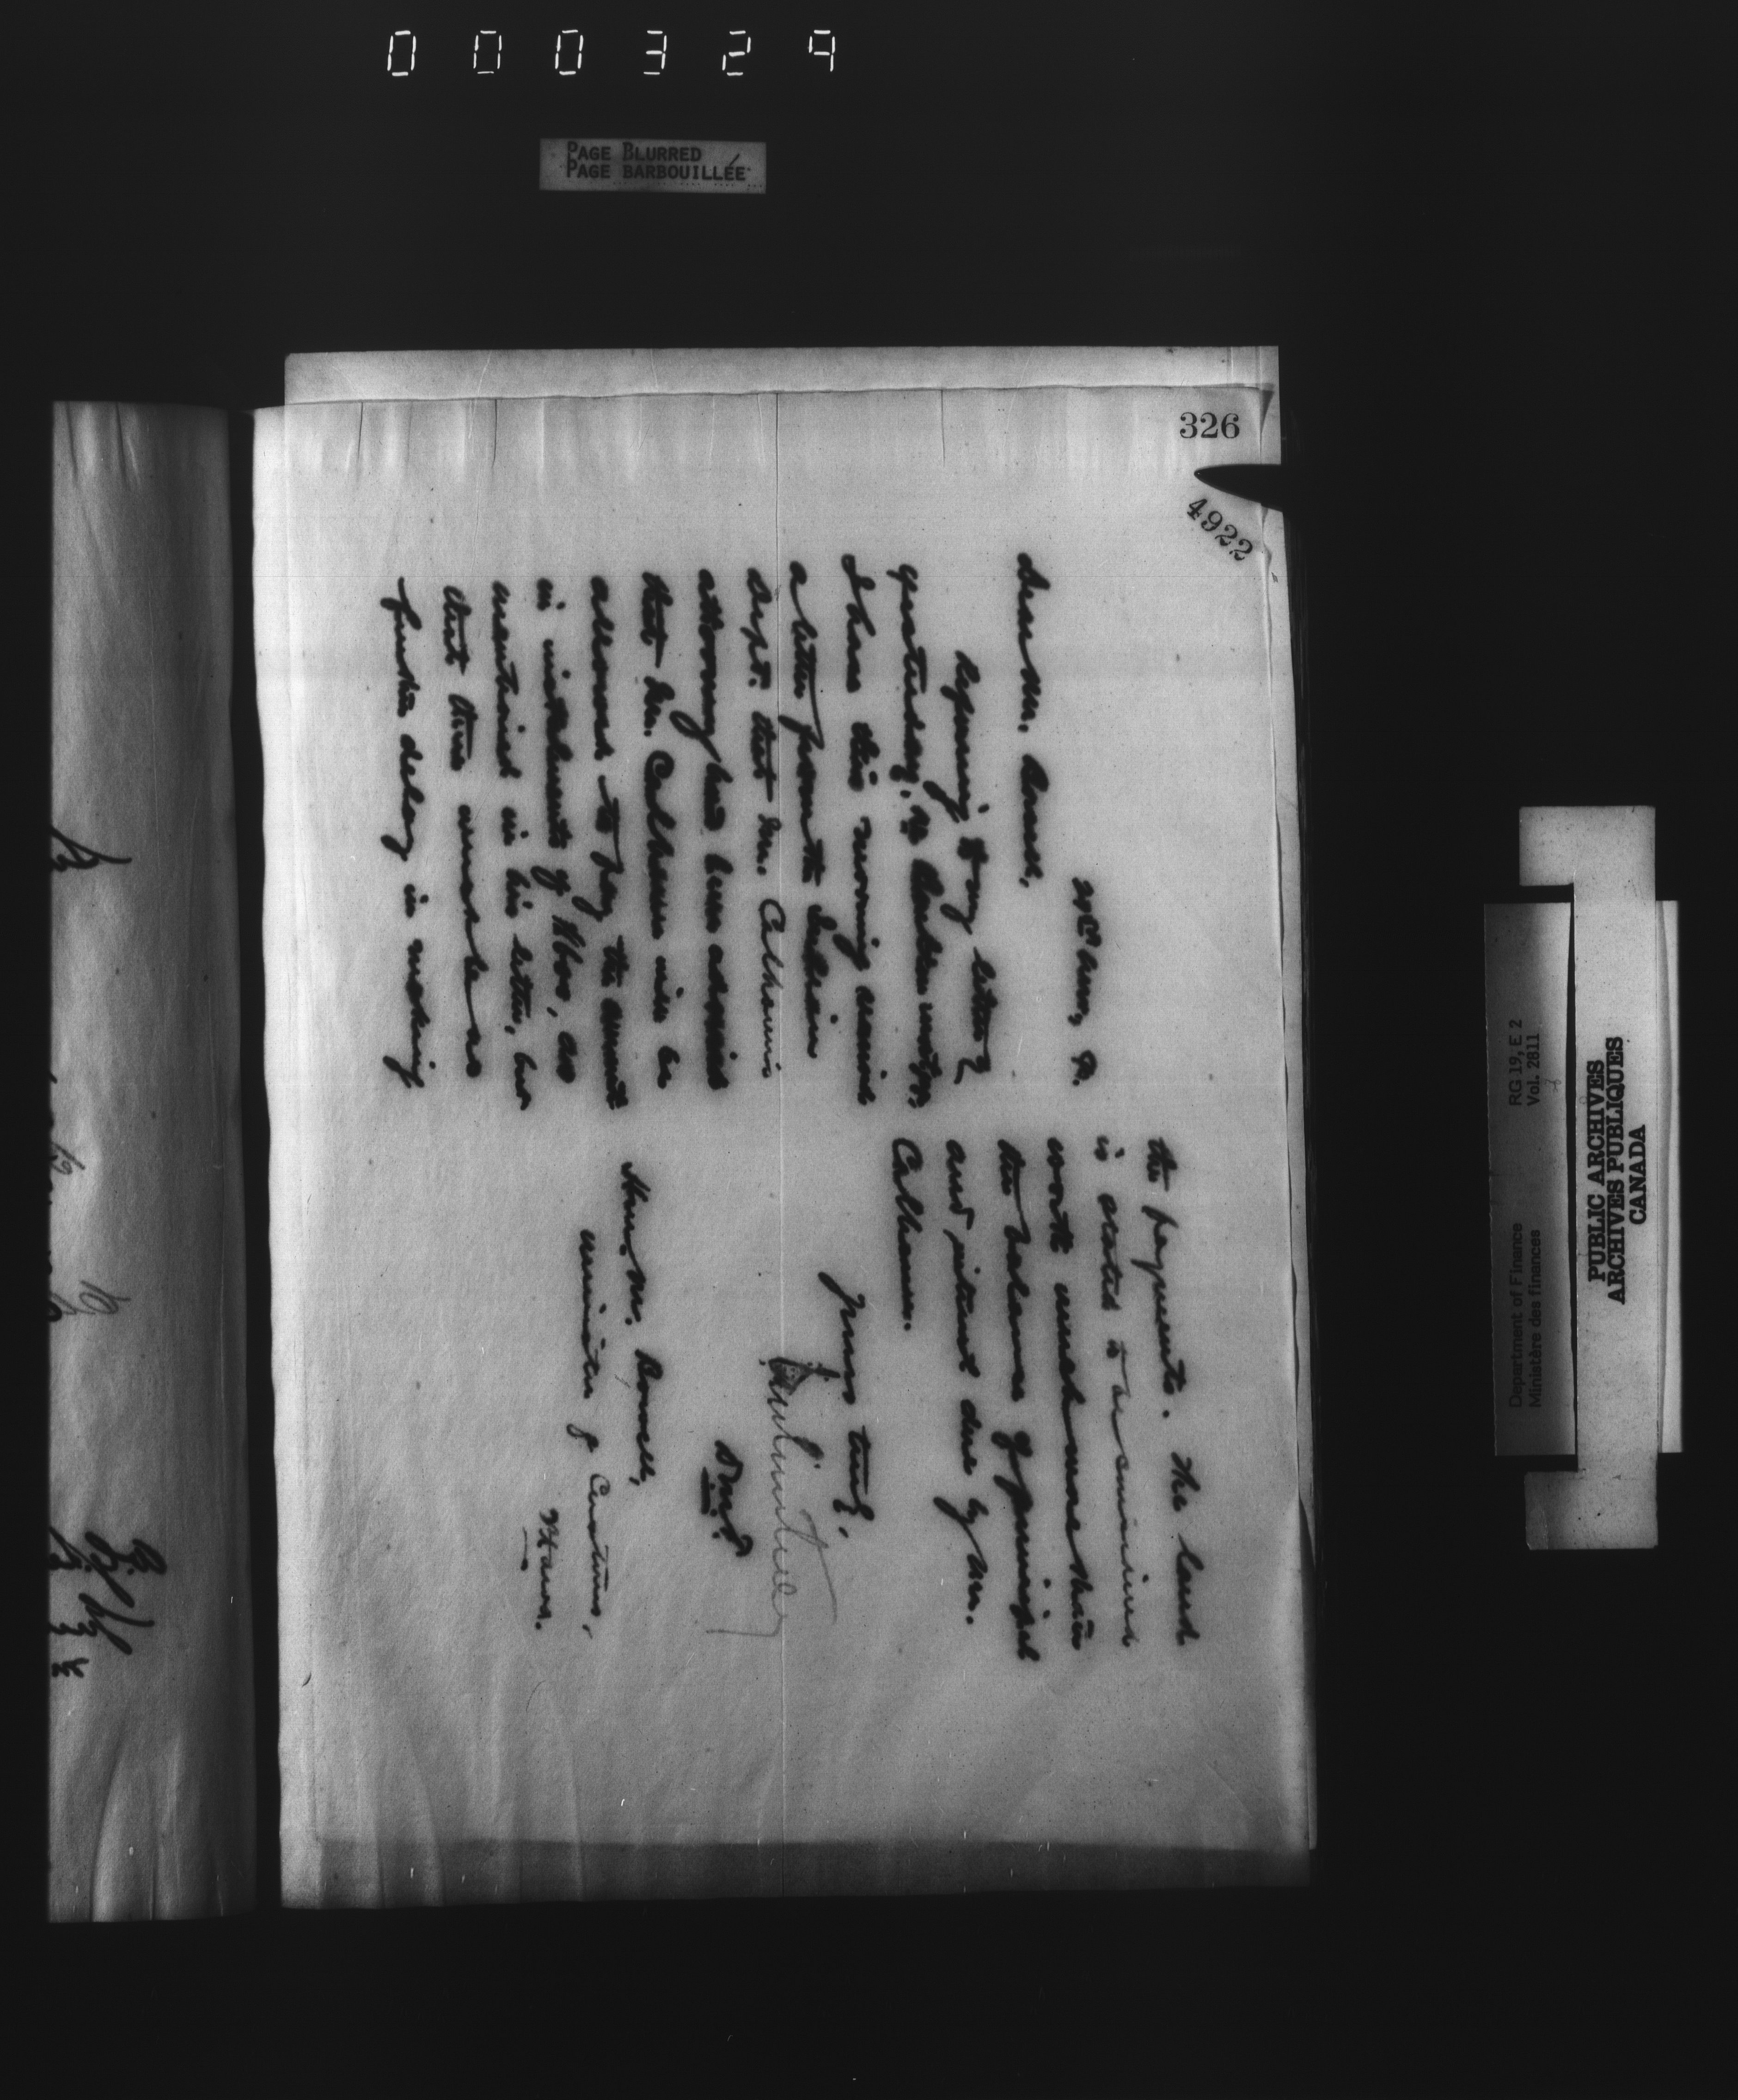 000329
PAGE BLURRED
PAGE BARBOUILLÉE
326
4922
Dear Mr. Bowell,
Referring to my letter of
yesterday,
I have this morning received
a letter from the Indian
Dept. that Mr. Calhoun's
attorney has been advised
that Mr. Calhoun will be
allowed to pay the amount
in instalments of $600, as
mentioned in his letter, but
that there must be no
further delay in making
the payments. The land
is stated to be
worth much more than
the balance of principal
and interest due by Mr.
Calhoun.
Yours truly,
D.M.F.
Hon. M. Bowell,
Minister of Customs,
Ottawa.
Department of Finance
Ministère des finances
RG 19, E 2
Vol. 2811
PUBLIC ARCHIVES
ARCHIVES PUBLIQUES
CANADA